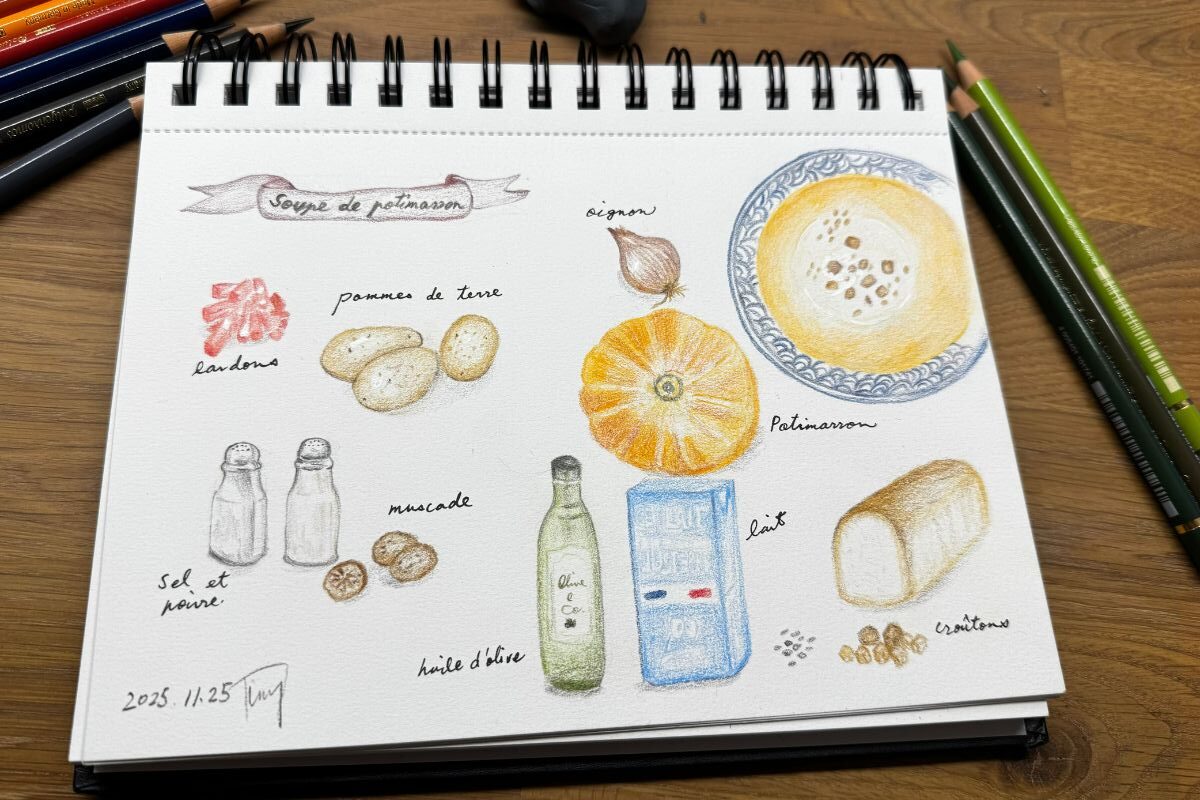 Soupe de potimarron
oignon
pommes de terre
lardons
Potimarron
muscade
lait
LAIT
Sel et
poivre.
Olive
&
Co.
croûtons
huile d'olive
2025.11.25 Tiny
Polychromos